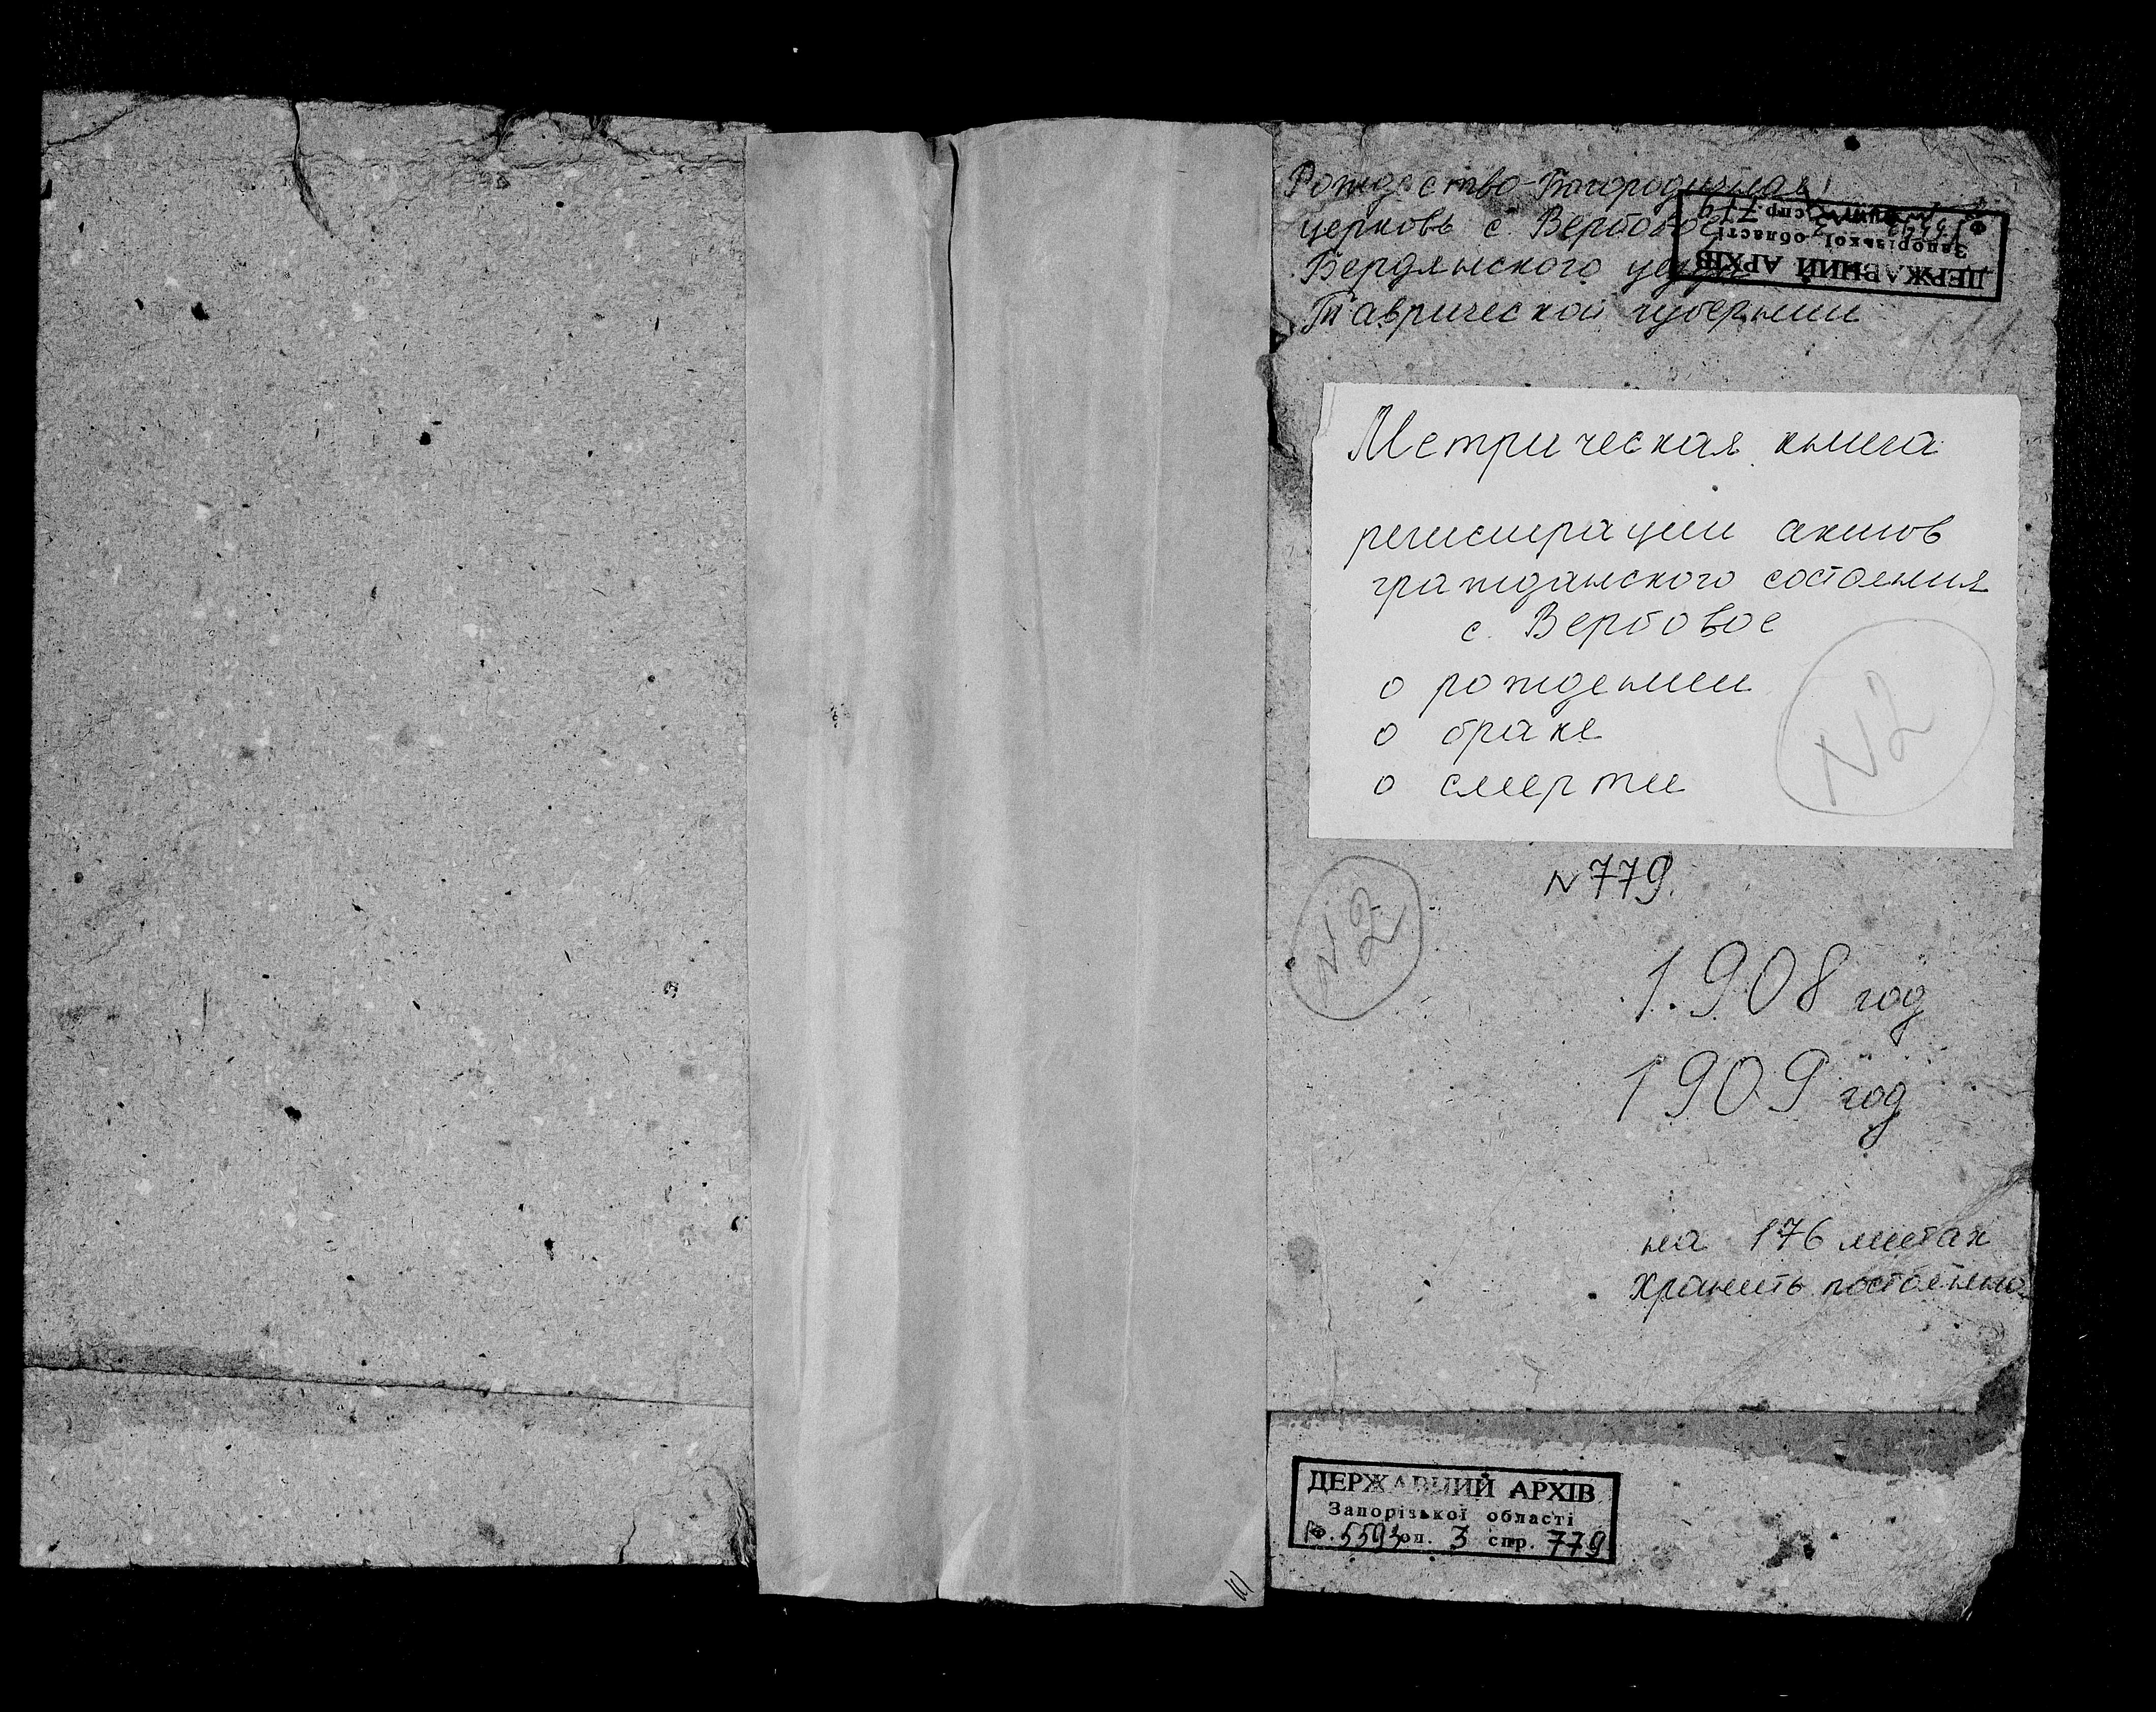 Рождество-Богородичная
церковь с. Вербовое
Бердянского уезда
Таврической губернии
ДЕРЖАВНИЙ АРХІВ
Запорізької області
спр. 779
Метрическая книга
регистрации актов
гражданского состояния
с. Вербовое
о рождении
о браке
о смерти
N2
N 779.
N.2
1908 год
1909 год
на 176 листах
Хранить постоянно
ДЕРЖАВНИЙ АРХІВ
Запорізької області
Ф. 5593 оп. 3 спр. 779